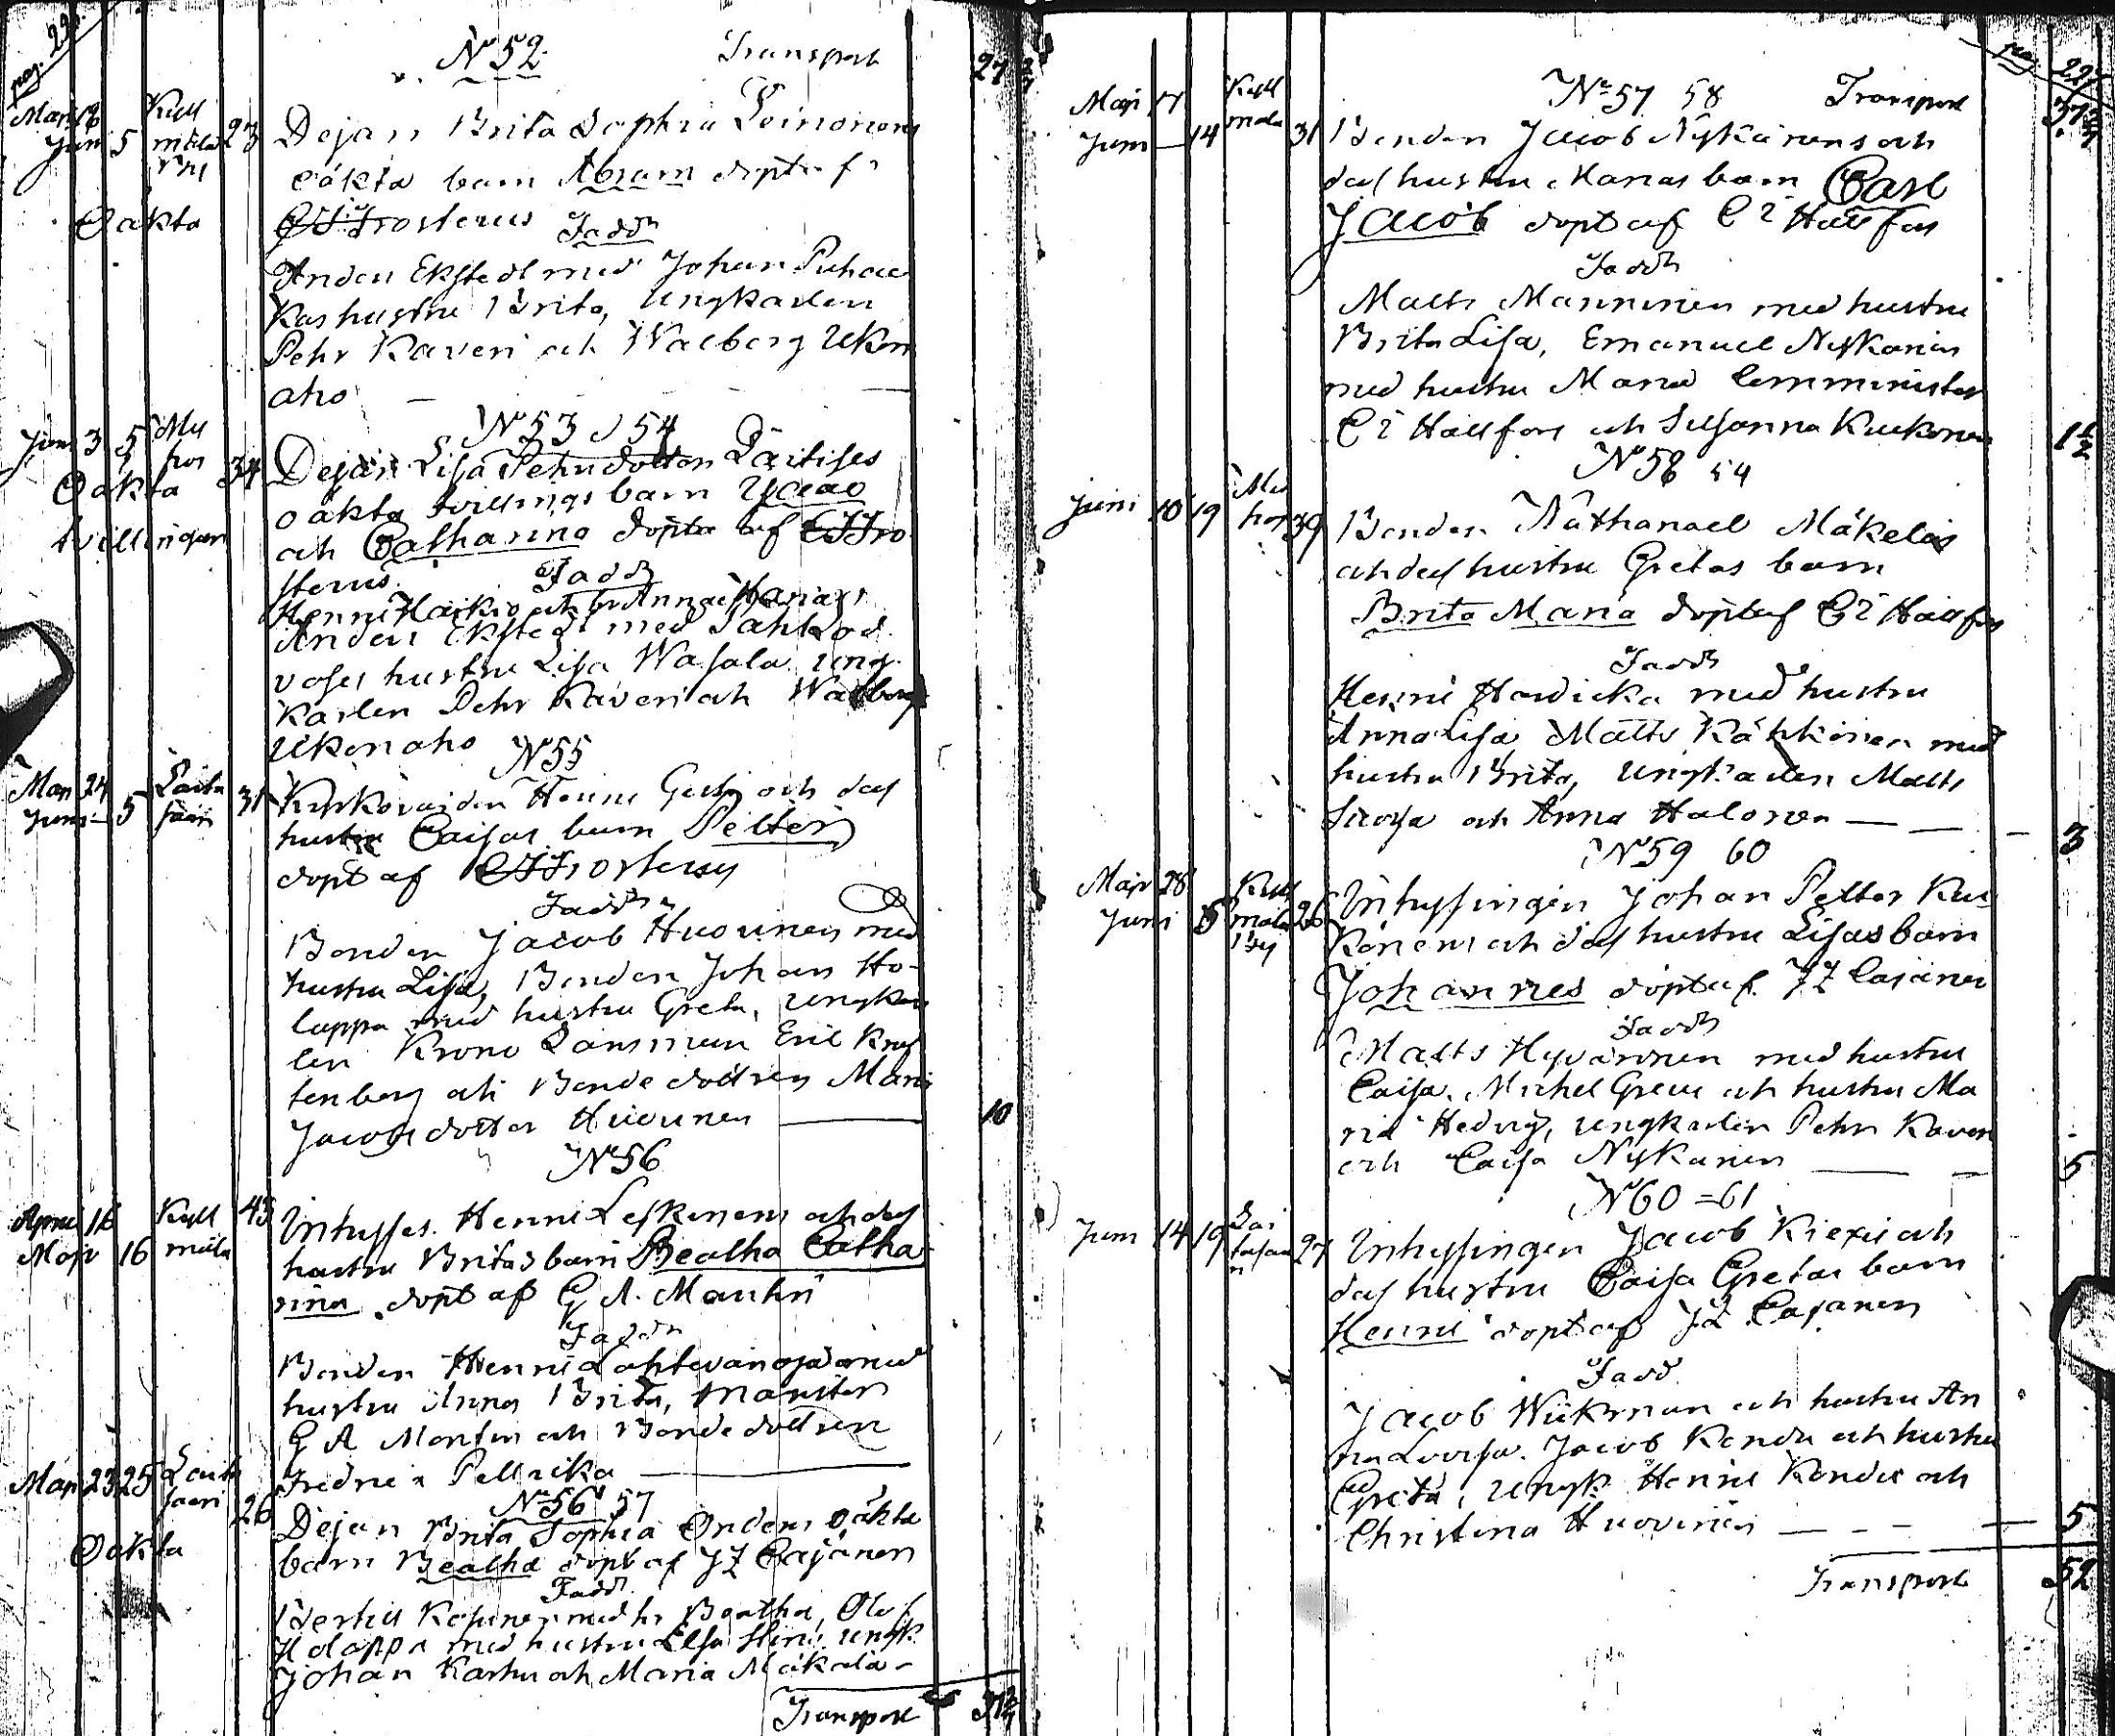 pag. 22.
No 52. Transport 27
Maji 16 Kyll 23 Dejan Brita Sophia Leinonens
Juni 5 mäla by oäkta barn Abram döpt af
Oäkta CJ Frosterus Fadd
Anders Ekstedt med Johan Puhac
kas hustru Brita, Ungkarlen
Pehr Kaveri och Walborg Ukon
aho
No 53 54
Juni 3 5 Mu hos 34 Dejan Lisa Pehrsdotter Laitises
Oäkta oäkta tvillings barn
tvillingar och Catharina döpta af CJ Fro
sterus. Fadd
Anders Ekstedt med
hustru Lisa Wasala ung
karlen Pehr Kaveri och Walborg
Ukonaho
No 55
Maji 24 Laita 31 Henric och das
Juni 5 saari hustru Caisas barn Petter
döpt af CJ Frosterus
Fadd
Bonden Jacob Huovinen med
hustru Lisa, Bonden Johan Ho-
lappa med hustru Greta, Ungkar
len Krono Länsman Eric Kra
tenberg och Bonde dottren Maria
Jacobsdotter Huovinen 10
No 56
April 16 Kyll 43 Inhyses. Henric Leskinens och das
Maji 16 mäla hustru Britas barn Beatha Catha
rina döpt af G A. Mantin
Fadd
Bonden Henric Lahtevanoja med
hustru Anna Brita,
G A Mantin och Bonde dottren
Fredrica Pellicka
No 56 57
Maji 23 25 Laita saari 26 Dejan Brita Sophia oäkta
Oäkta barn Beatha döpt af JZ Cajanen
Fadd
Bertil Kosunen med hr Beatha, Olof
Holappa med hustru Elsa ungk
Johan Karhu och Maria Mäkälä
Transport
pag. 22
No 57 58 Transport
Maji 17 Kyll Bonden Jacob Nyskänens och
Juni 14 mäla 31 das hustru Marias barn Carl
Jacob döpt af CE Hällfors
Fadd
Matts Manninen med hustru
Brita Lisa, Emanuel Nyskänen
med hustru Maria Comminister
CE Hällfors och Susanna Kuckonen 1 1/2
No 58 59
Juni 10 19 Mu hos 39 Bonden Nathanael Mäkeläs
och das hustru Gretas barn
Brita Maria döpt af CE Hällfors
Fadd
Henric Hardicka med hustru
Anna Lisa Matts Kähkönen med
hustru Brita, Ungkarlen Matts
Sirviä och Anna Halonen 3
No 59 60
Maji 28 Kyll Inhysingen Johan Petter Kuc
Juni 5 mäla by 26 konens och das hustru Lisas barn
Johannes döpt af JZ Cajanen
Fadd
Matts Hyvärinen med hustru
Caisa. Michel Greus och hustru Ma
ria Hedvig, Ungkarlen Pehr Kaveri
och Caisa Nyskänen 5
No 60 = 61
Juni 14 19 Lai tasaari 27 Inhysingen Jacob Kiexis och
das hustru Caisa Gretas barn
Henric döpt af JZ Cajanen
Fadd
Jacob Wiikman och hustru An
na Lovisa. Jacob Kondu och hustru
Greta, Ungk Henric Kondu och
Christina Huovinen 5
Transport 52